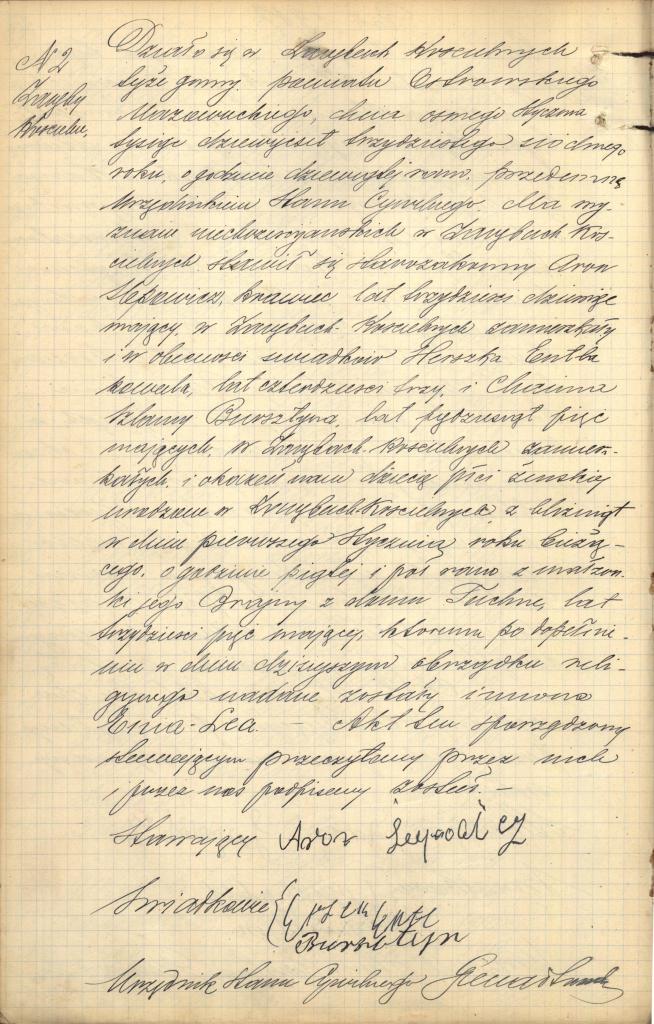 N 2
Zaręby
Kościelne,
Działo się w Zarębach Kościelnych
tejże gminy powiatu Ostrowskiego
Mazowieckiego, dnia ósmego stycznia
tysiąc dziewięćset trzydziestego siódmego
roku, o godzinie dziewiątej rano. Przedemną
Urzędnikiem Stanu Cywilnego dla wy-
znań niechrześcijańskich w Zarębach Koś-
cielnych stawił się starozakonny Aron
krawiec lat trzydzieści dziewięć
mający, w Zarębach-Kościelnych zamieszkały
i w obecności świadków Herszka Entla
kowala, lat czterdzieści trzy, i Chaima
Szlamy Bursztyna, lat pięć
mających, w Zarębach-Kościelnych zamiesz-
kałych, i okazał nam dziecię płci żeńskiej
urodzone w Zarębach Kościelnych z bliźniąt
w dniu pierwszego stycznia roku bieżą-
cego, o godzinie piątej i pół rano z małżon-
ki jego Brajny z domu Tuchne, lat
trzydzieści pięć mającej, któremu po dopełnie-
niu w dniu dzisiejszym obrządku reli-
gijnego nadane zostały imiona
Lea. – Akt ten sporządzony
stawającym przeczytany przez nich
i przez nas podpisany został. –
Stawający Aron
Świadkowie {
Bursztyn
Urzędnik Stanu Cywilnego